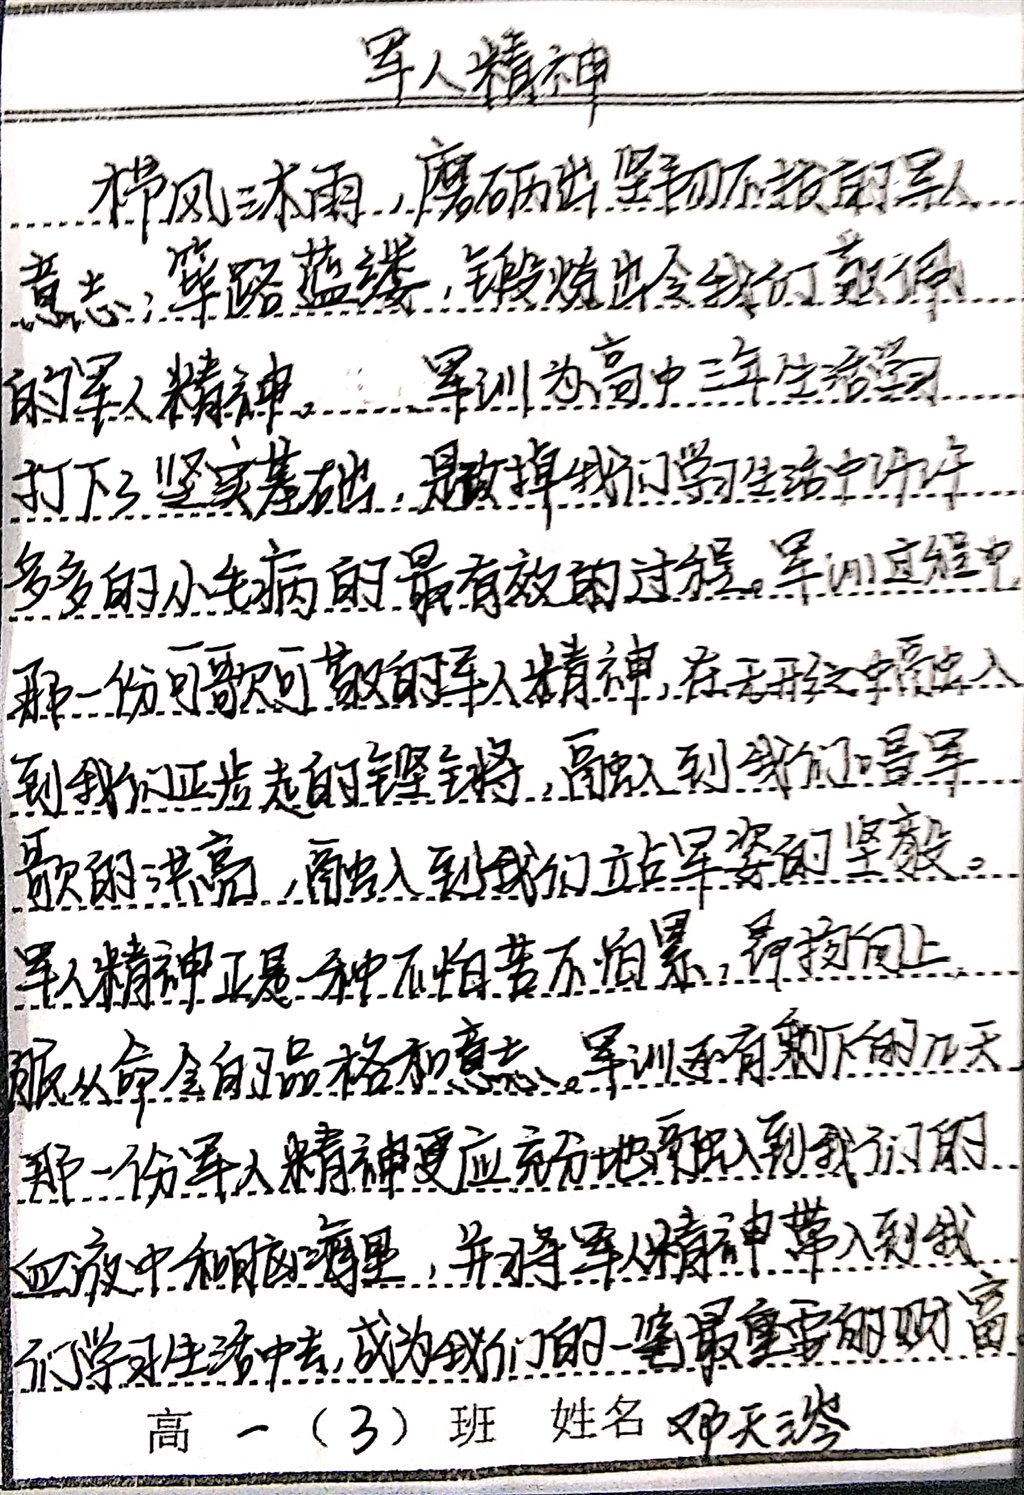 军人精神
栉风沐雨，磨砺出坚韧不拔的军人
意志；筚路蓝缕，锻炼出令我们敬佩
的军人精神。军训为高中三年生活学习
打下了坚实基础，是改掉我们学习生活中许许
多多的小毛病的最有效的过程。军训过程中
那一份可歌可敬的军人精神，在无形之中融入
到我们正步走的铿锵，融入到我们唱军
歌的洪亮，融入到我们立站军姿的坚毅。
军人精神正是一种不怕苦不怕累，昂扬向上
服从命令的品格和意志。军训还有剩下的几天
那一份军人精神更应充分地融入到我们的
血液中和脑海里，并将军人精神带入到我
们学习生活中去，成为我们的一笔最重要的财富
高一（3）班 姓名 邓天